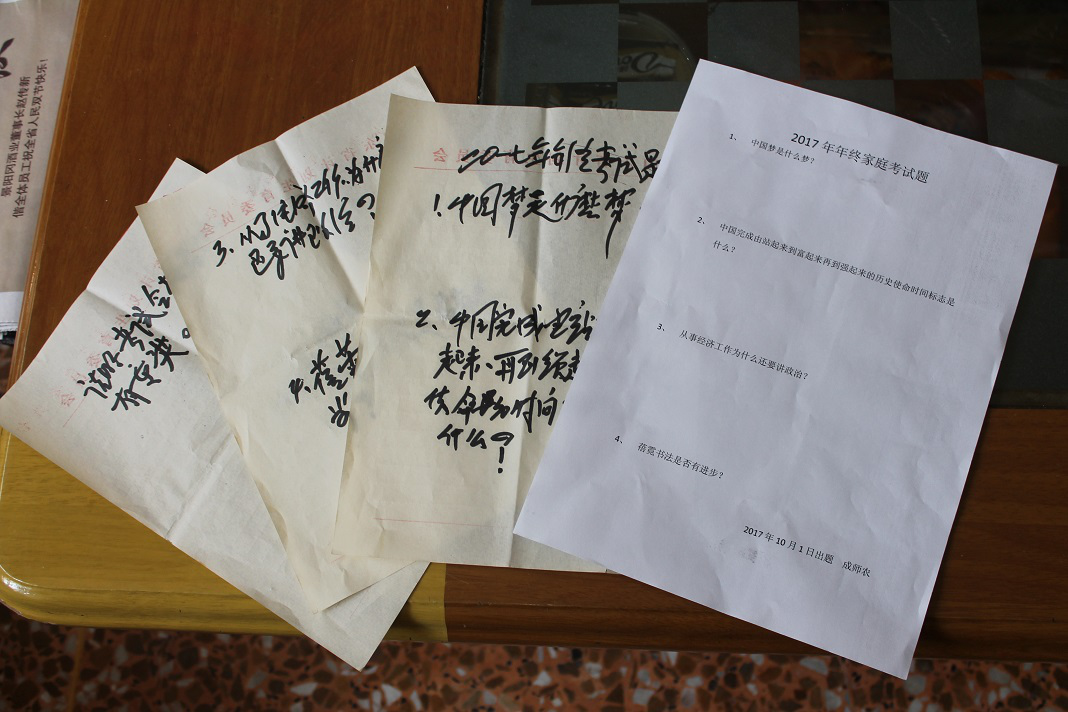 景阳冈酒业董事长赵传新
偕全体员工祝全省人民双节快乐!
请将考试会
有重奖。
3、从事经济工作为什
还要讲政治?
4、蓓
二0一七年
考试
1.中国梦是什么梦
2、中国完成由站
起来、再到强起
使命的时间
什么?!
2017 年年终家庭考试题
1、 中国梦是什么梦?
2、 中国完成由站起来到富起来再到强起来的历史使命时间标志是
什么?
3、 从事经济工作为什么还要讲政治?
4、 蓓霓书法是否有进步?
2017 年 10 月 1 日出题 成师农